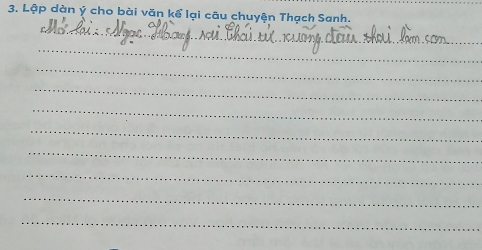 3. Lập dàn ý cho bài văn kể lại câu chuyện Thạch Sanh.
Mở bài: Ngọc Hoàng sai Thái tử xuống đầu thai làm con